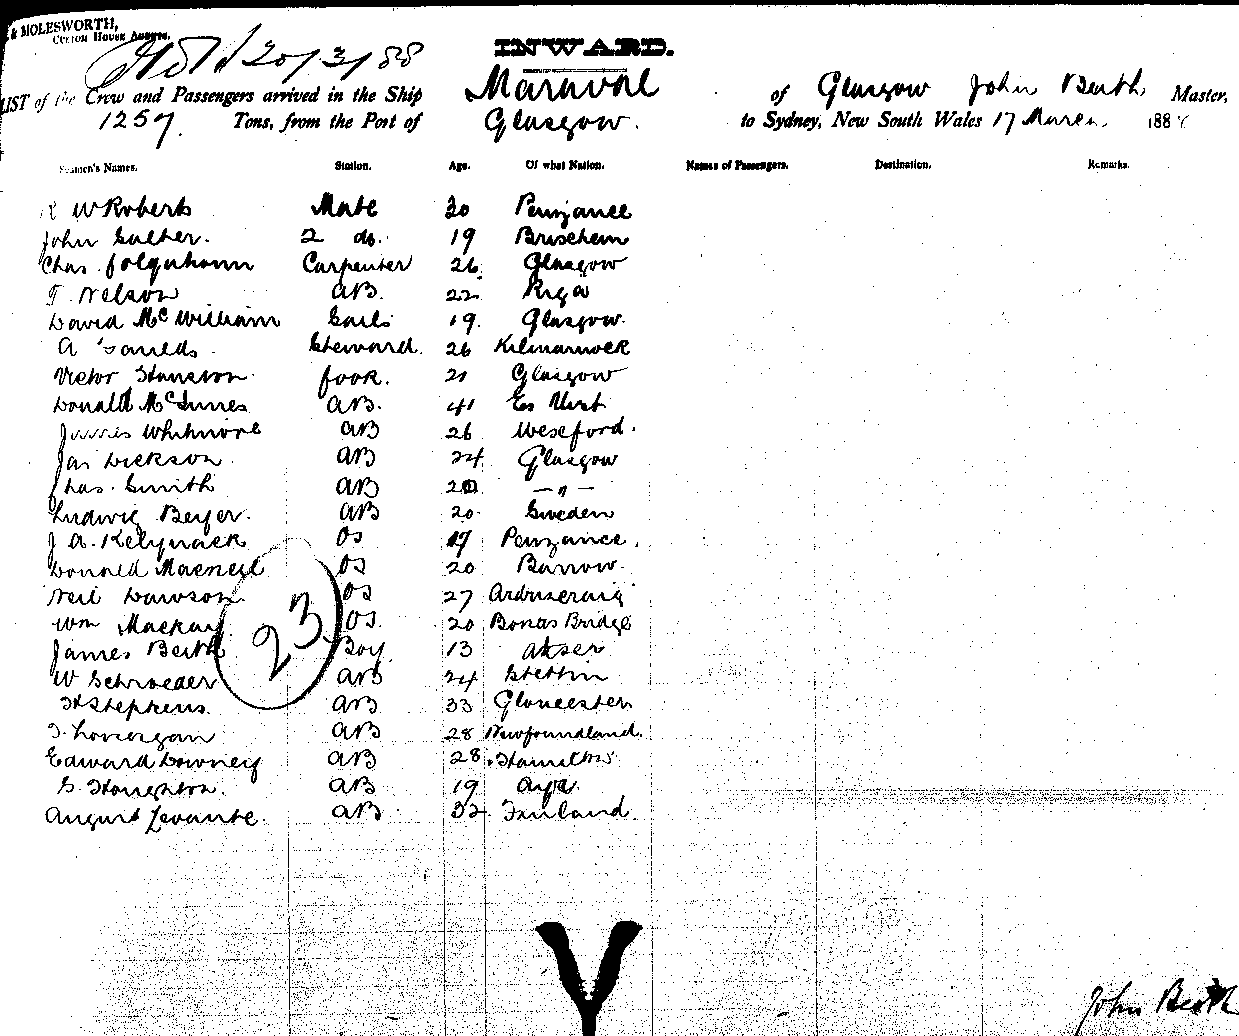 & MOLESWORTH,
Custom House Agents.
20/3/88
INWARD.
LIST of the Crew and Passengers arrived in the Ship Maraval of Glasgow John Beith Master,
1257 Tons, from the Port of Glasgow. to Sydney, New South Wales 17 March 188
Seamen's Names. Station. Age. Of what Nation. Names of Passengers. Destination. Remarks.
W Roberts Mate 30 Penzance
John Salter. 2 do. 19 Brixham
Chas. Carpenter 26 Glasgow
T. Nelson AB. 22 Riga
David McWilliam Sails 19. Glasgow.
A Steward. 26 Kilmarnock
Victor Cook. 21 Glasgow
Donald McInnes AB. 41
James Whitmore AB 26
Jas Dickson AB 24 Glasgow
Chas. Smith AB 20 — " —
Ludwig Beyer. AB 20. Sweden
J A. Kelynack OS 17 Penzance.
Donald Macneil OS 20 Barrow.
Neil Dawson OS 27
Wm Mackay OS. 20 Bonar Bridge
James Beith Boy 13
W Schroeder AB 24 Stettin
H Stephens. AB 33 Gloucester
AB 28 Newfoundland.
Edward Downey AB 28. Hamilton
AB 19
August AB 32 Finland.
23
John Beith